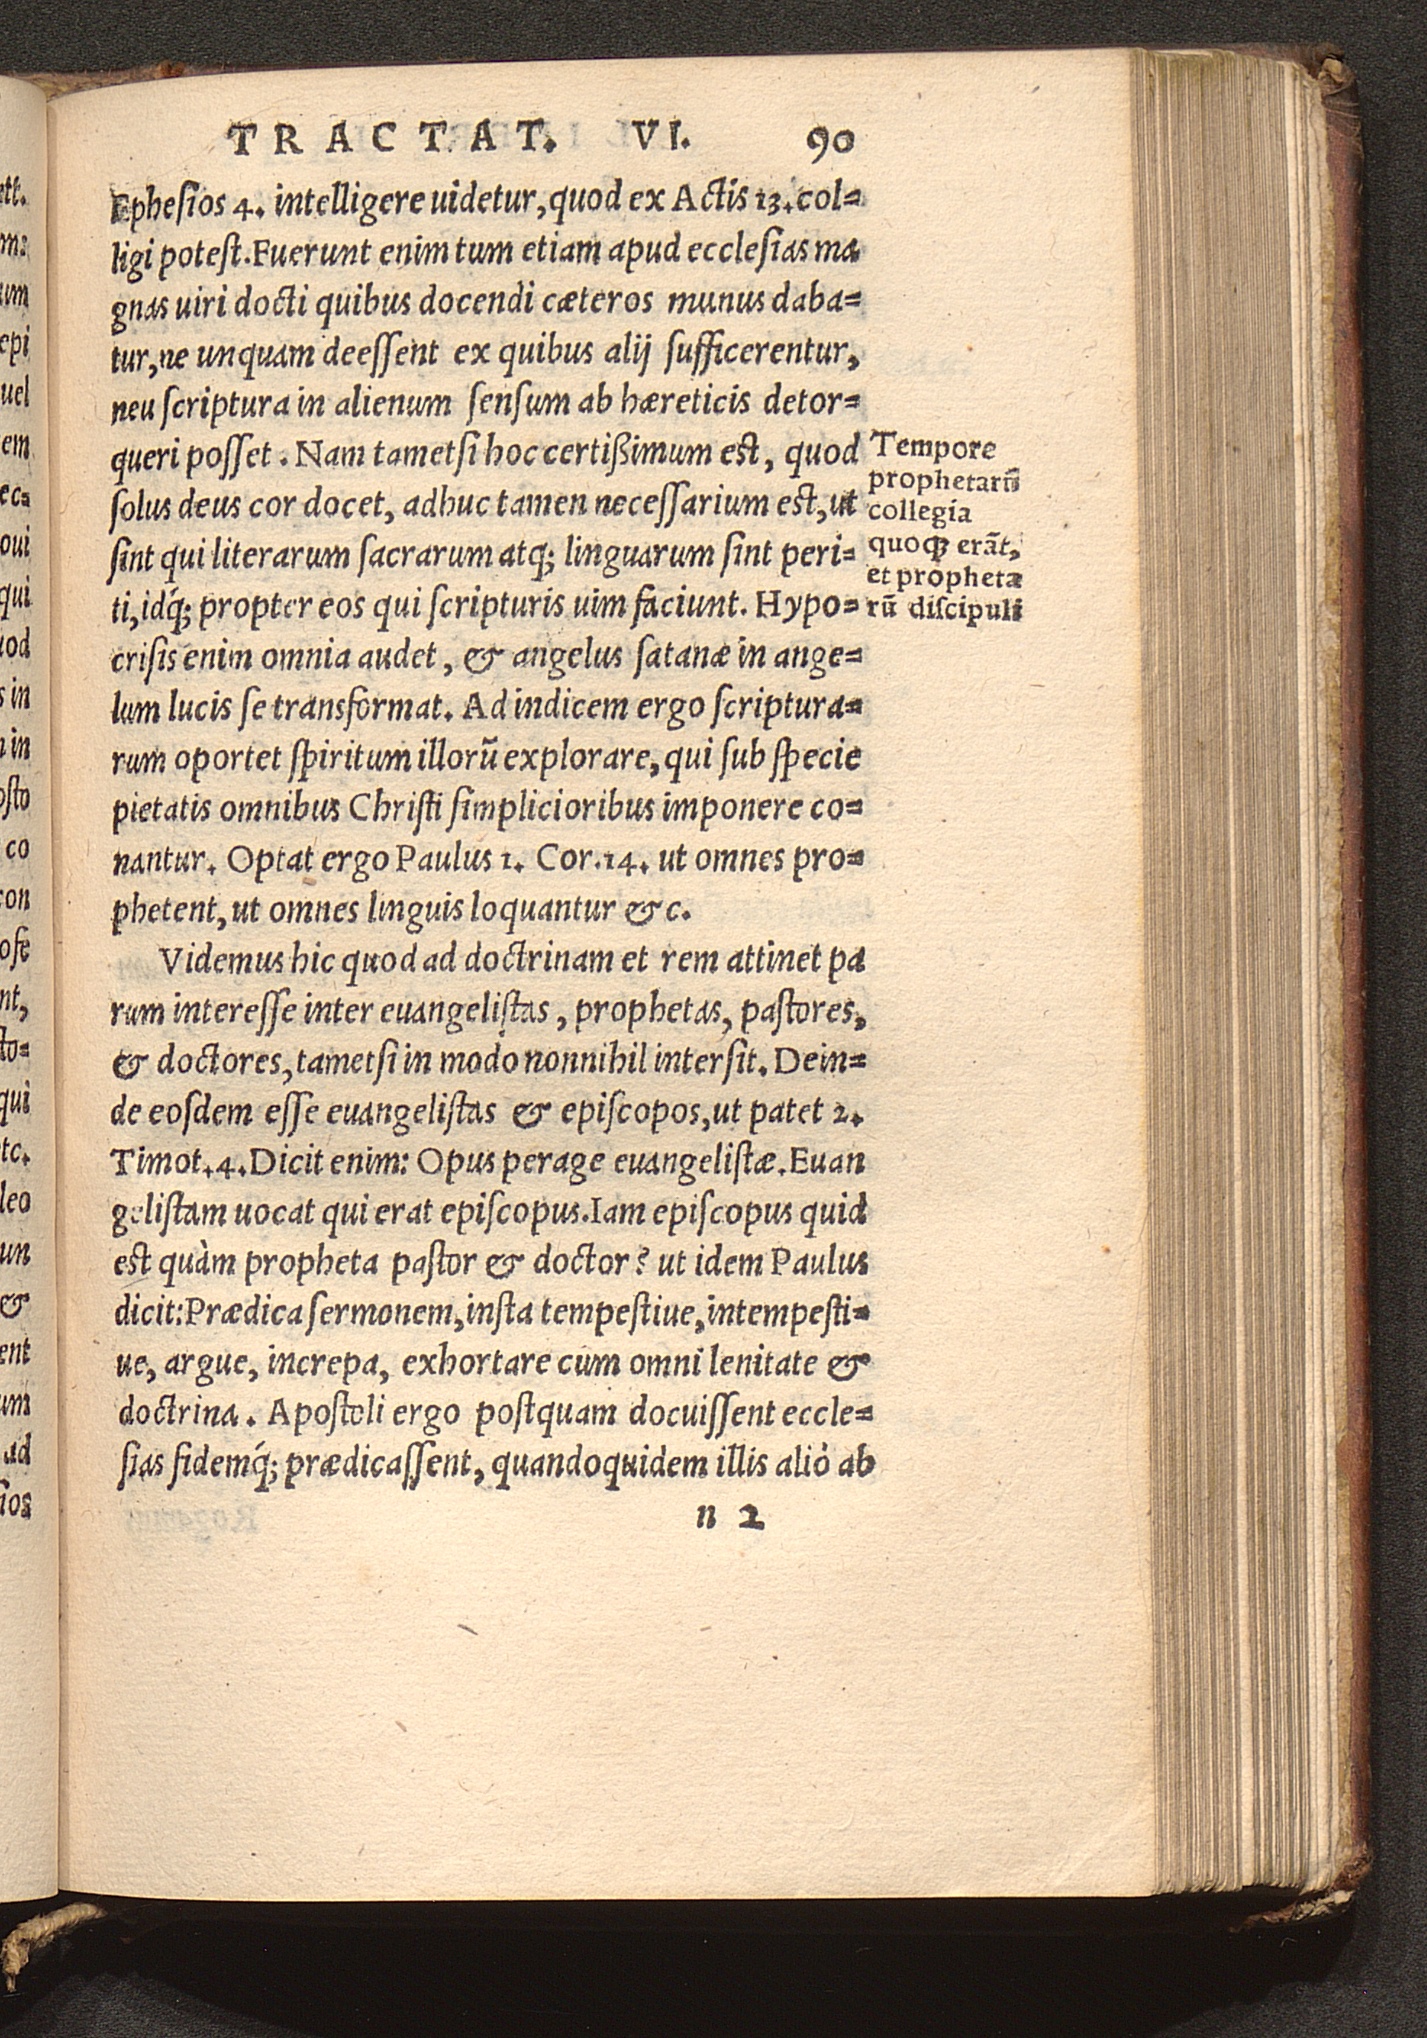 TRACTAT. VI. 90
Ephesios 4. intelligere uidetur, quod ex Actis 13. col=
ligi potest. Fuerunt enim tum etiam apud ecclesias ma
gnas uiri docti quibus docendi cæteros munus daba=
tur, ne unquam deessent ex quibus alij sufficerentur,
neu scriptura in alienum sensum ab hæreticis detor=
queri posset. Nam tametsi hoc certißimum est, quod
solus deus cor docet, adhuc tamen necessarium est, ut
sint qui literarum sacrarum atq; linguarum sint peri=
ti, idq́; propter eos qui scripturis uim faciunt. Hypo=
crisis enim omnia audet, & angelus satanæ in ange=
lum lucis se transformat. Ad indicem ergo scriptura=
rum oportet spiritum illorũ explorare, qui sub specie
pietatis omnibus Christi simplicioribus imponere co=
nantur. Optat ergo Paulus 1. Cor. 14. ut omnes pro=
phetent, ut omnes linguis loquantur &c.
Videmus hic quod ad doctrinam et rem attinet pa
rum interesse inter euangelistas, prophetas, pastores,
& doctores, tametsi in modo nonnihil intersit. Dein=
de eosdem esse euangelistas & episcopos, ut patet 2.
Timot. 4. Dicit enim: Opus perage euangelistæ. Euan
gelistam uocat qui erat episcopus. Iam episcopus quid
est quàm propheta pastor & doctor? ut idem Paulus
dicit: Prædica sermonem, insta tempestiue, intempesti=
ue, argue, increpa, exhortare cum omni lenitate &
doctrina. Apostoli ergo postquam docuissent eccle=
sias fidemq́; prædicassent, quandoquidem illis aliò ab
n 2
Tempore
prophetarũ
collegia
quoqꝫ erãt,
et prophetæ
rũ discipuli